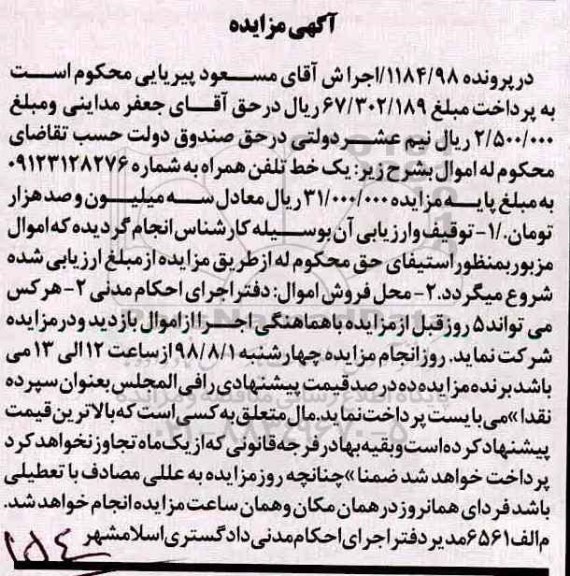 آگهی مزایده
در پرونده ۱۱۸۴/۹۸/اجرا ش آقای مسعود پیریایی محکوم است
به پرداخت مبلغ ۶۷/۳۰۲/۱۸۹ ریال در حق آقای جعفر مداینی و مبلغ
۲/۵۰۰/۰۰۰ ریال نیم عشر دولتی در حق صندوق دولت حسب تقاضای
محکوم له اموال بشرح زیر: یک خط تلفن همراه به شماره ۰۹۱۲۳۱۲۸۲۷۶
به مبلغ پایه مزایده ۳۱/۰۰۰/۰۰۰ ریال معادل سه میلیون و صد هزار
تومان./۱- توقیف و ارزیابی آن بوسیله کارشناس انجام گردیده که اموال
مزبور بمنظور استیفای حق محکوم له از طریق مزایده از مبلغ ارزیابی شده
شروع میگردد.۲- محل فروش اموال: دفتر اجرای احکام مدنی ۲- هر کس
می تواند ۵ روز قبل از مزایده با هماهنگی اجرا از اموال بازدید و در مزایده
شرکت نماید. روز انجام مزایده چهارشنبه ۹۸/۸/۱ از ساعت ۱۲ الی ۱۳ می
باشد برنده مزایده ده درصد قیمت پیشنهادی را فی المجلس بعنوان سپرده
نقدا» می بایست پرداخت نماید. مال متعلق به کسی است که بالاترین قیمت
پیشنهاد کرده است و بقیه بها در فرجه قانونی که از یک ماه تجاوز نخواهد کرد
پرداخت خواهد شد ضمنا» چنانچه روز مزایده به عللی مصادف با تعطیلی
باشد فردای همانروز در همان مکان و همان ساعت مزایده انجام خواهد شد.
م الف ۶۵۶۱ مدیر دفتر اجرای احکام مدنی دادگستری اسلامشهر
۱۸۴